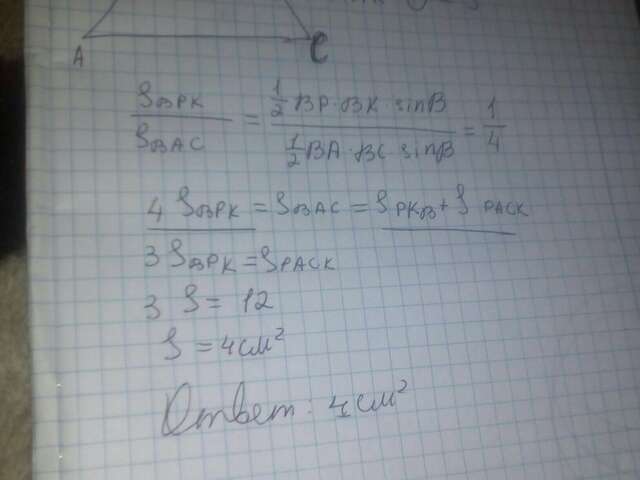 A C
S_BPK / S_BAC = (1/2 BP · BK · sinB) / (1/2 BA · BC sinB) = 1/4
4 S_BPK = S_BAC = S_PKB + S_PACK
3 S_BPK = S_PACK
3 S = 12
S = 4см²
Ответ: 4см²